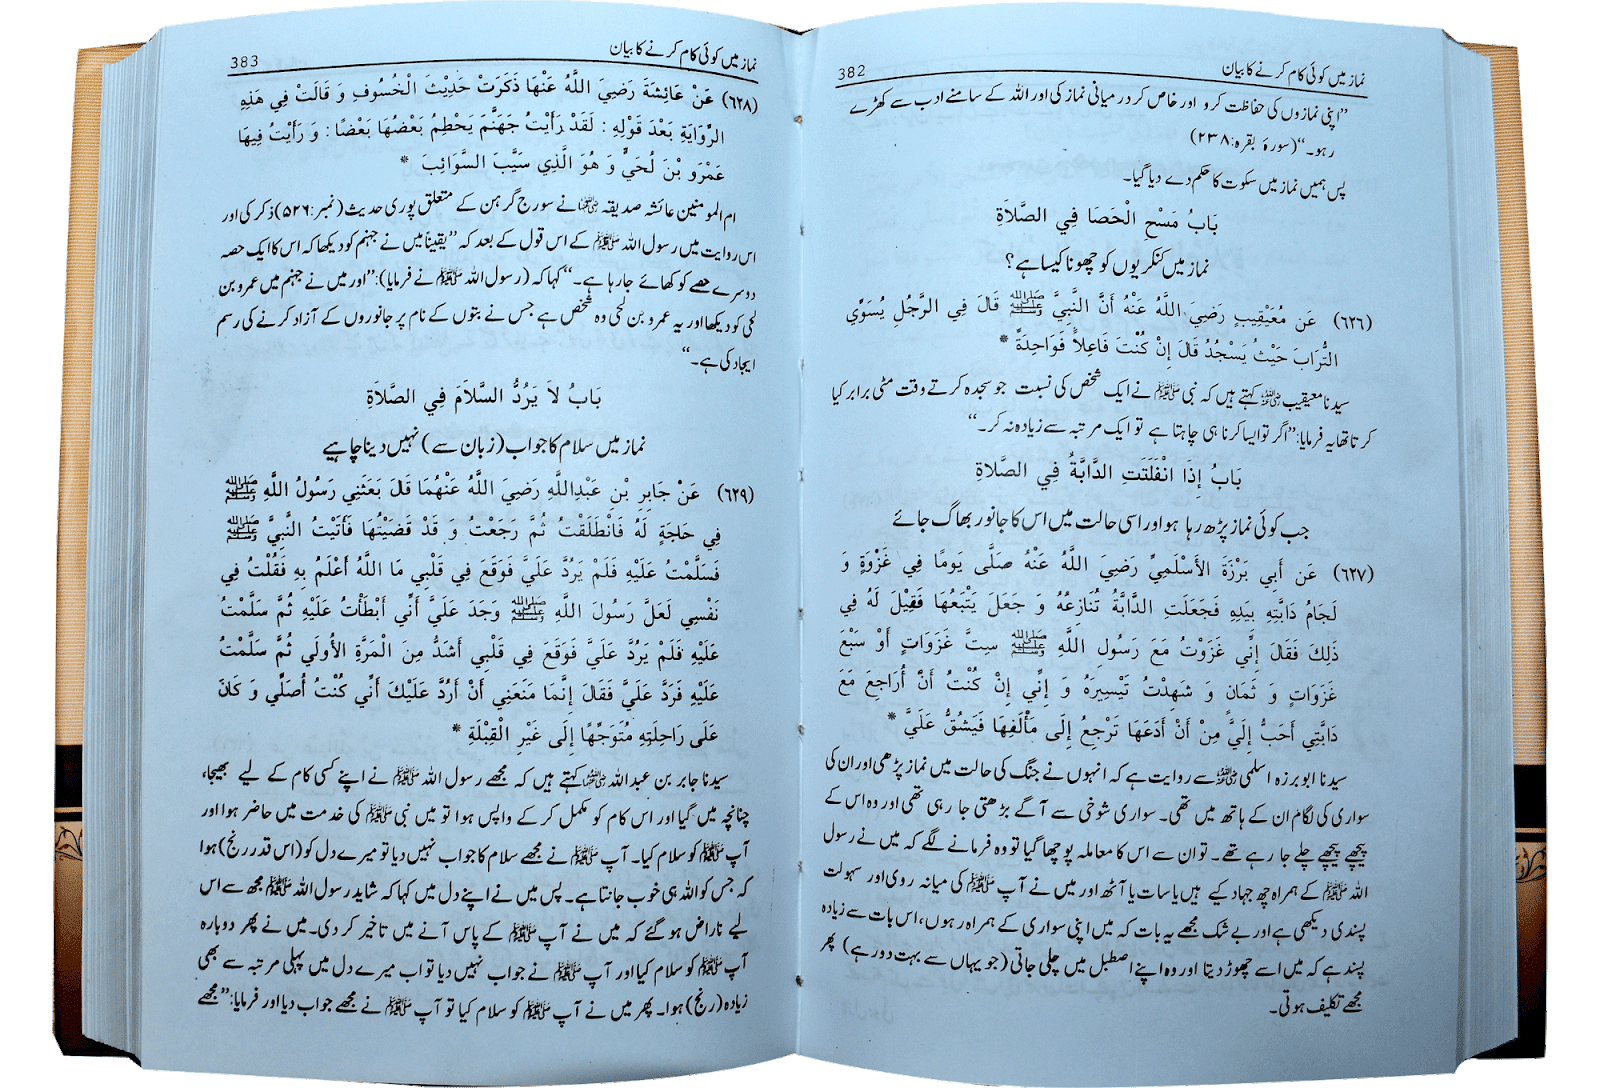 نماز میں کوئی کام کرنے کا بیان 382
”اپنی نمازوں کی حفاظت کرو اور خاص کر درمیانی نماز کی اور اللہ کے سامنے ادب سے کھڑے
رہو۔“ (سورۃ بقرہ:۲۳۸)
پس ہمیں نماز میں سکوت کا حکم دے دیا گیا۔
بَابُ مَسْحِ الْحَصَا فِي الصَّلَاةِ
نماز میں کنکریوں کو چھونا کیسا ہے؟
(٦٢٦) عَن مُعَيْقِيبٍ رَضِيَ اللَّهُ عَنْهُ أَنَّ النَّبِيَّ ﷺ قَالَ فِي الرَّجُلِ يُسَوِّي
التُّرَابَ حَيْثُ يَسْجُدُ قَالَ إِنْ كُنْتَ فَاعِلاً فَوَاحِدَةً *
سیدنا معیقیب رضی اللہ عنہ کہتے ہیں کہ نبی ﷺ نے ایک شخص کی نسبت جو سجدہ کرتے وقت مٹی برابر کیا
کرتا تھا یہ فرمایا: ”اگر تو ایسا کرنا ہی چاہتا ہے تو ایک مرتبہ سے زیادہ نہ کر۔“
بَابُ إِذَا انْفَلَتَتِ الدَّابَّةُ فِي الصَّلَاةِ
جب کوئی نماز پڑھ رہا ہو اور اسی حالت میں اس کا جانور بھاگ جائے
(٦٢٧) عَن أَبِي بَرْزَةَ الأَسْلَمِيِّ رَضِيَ اللَّهُ عَنْهُ صَلَّى يَومًا فِي غَزْوَةٍ وَ
لِجَامُ دَابَّتِهِ بِيَدِهِ فَجَعَلَتِ الدَّابَّةُ تُنَازِعُهُ وَ جَعَلَ يَتْبَعُهَا فَقِيْلَ لَهُ فِي
ذَلِكَ فَقَالَ إِنِّي غَزَوْتُ مَعَ رَسُولِ اللَّهِ ﷺ سِتَّ غَزَوَاتٍ أَوْ سَبْعَ
غَزَوَاتٍ وَ ثَمَانٍ وَ شَهِدْتُ تَيْسِيرَهُ وَ إِنِّي إِنْ كُنْتُ أَنْ أُرَاجِعَ مَعَ
دَابَّتِي أَحَبُّ إِلَيَّ مِنْ أَنْ أَدَعَهَا تَرْجِعُ إِلَى مَأْلَفِهَا فَيَشُقُّ عَلَيَّ *
سیدنا ابو برزہ اسلمی رضی اللہ عنہ سے روایت ہے کہ انہوں نے جنگ کی حالت میں نماز پڑھی اور ان کی
سواری کی لگام ان کے ہاتھ میں تھی۔ سواری شوخی سے آگے بڑھتی جا رہی تھی اور وہ اس کے
پیچھے پیچھے چلے جا رہے تھے۔ تو ان سے اس کا معاملہ پوچھا گیا تو وہ فرمانے لگے کہ میں نے رسول
اللہ ﷺ کے ہمراہ چھ جہاد کیے ہیں یا سات یا آٹھ اور میں نے آپ ﷺ کی میانہ روی اور سہولت
پسندی دیکھی ہے اور بے شک مجھے یہ بات کہ میں اپنی سواری کے ہمراہ رہوں، اس بات سے زیادہ
پسند ہے کہ میں اسے چھوڑ دیتا اور وہ اپنے اصطبل میں چلی جاتی (جو یہاں سے بہت دور ہے) پھر
مجھے تکلیف ہوتی۔
نماز میں کوئی کام کرنے کا بیان 383
(٦٢٨) عَنْ عَائِشَةَ رَضِيَ اللَّهُ عَنْهَا ذَكَرَتْ حَدِيْثَ الْخُسُوفِ وَ قَالَتْ فِي هَذِهِ
الرِّوَايَةِ بَعْدَ قَوْلِهِ : لَقَدْ رَأَيْتُ جَهَنَّمَ يَحْطِمُ بَعْضُهَا بَعْضًا : وَ رَأَيْتُ فِيهَا
عَمْرَو بْنَ لُحَيٍّ وَ هُوَ الَّذِي سَيَّبَ السَّوَائِبَ *
ام المومنین عائشہ صدیقہ رضی اللہ عنہا نے سورج گرہن کے متعلق پوری حدیث (نمبر:۵۲۶) ذکر کی اور
اس روایت میں رسول اللہ ﷺ کے اس قول کے بعد کہ ”یقیناً میں نے جہنم کو دیکھا کہ اس کا ایک حصہ
دوسرے حصے کو کھائے جا رہا ہے۔“ کہا کہ (رسول اللہ ﷺ نے فرمایا): ”اور میں نے جہنم میں عمرو بن
لحی کو دیکھا اور یہ عمرو بن لحی وہ شخص ہے جس نے بتوں کے نام پر جانوروں کے آزاد کرنے کی رسم
ایجاد کی ہے۔“
بَابُ لاَ يَرُدُّ السَّلاَمَ فِي الصَّلاَةِ
نماز میں سلام کا جواب (زبان سے) نہیں دینا چاہیے
(٦٢٩) عَنْ جَابِرِ بْنِ عَبْدِاللَّهِ رَضِيَ اللَّهُ عَنْهُمَا قَالَ بَعَثَنِي رَسُولُ اللَّهِ ﷺ
فِي حَاجَةٍ لَهُ فَانْطَلَقْتُ ثُمَّ رَجَعْتُ وَ قَدْ قَضَيْتُهَا فَأَتَيْتُ النَّبِيَّ ﷺ
فَسَلَّمْتُ عَلَيْهِ فَلَمْ يَرُدَّ عَلَيَّ فَوَقَعَ فِي قَلْبِي مَا اللَّهُ أَعْلَمُ بِهِ فَقُلْتُ فِي
نَفْسِي لَعَلَّ رَسُولَ اللَّهِ ﷺ وَجَدَ عَلَيَّ أَنِّي أَبْطَأْتُ عَلَيْهِ ثُمَّ سَلَّمْتُ
عَلَيْهِ فَلَمْ يَرُدَّ عَلَيَّ فَوَقَعَ فِي قَلْبِي أَشَدُّ مِنَ الْمَرَّةِ الأُولَي ثُمَّ سَلَّمْتُ
عَلَيْهِ فَرَدَّ عَلَيَّ فَقَالَ إِنَّمَا مَنَعَنِي أَنْ أَرُدَّ عَلَيْكَ أَنِّي كُنْتُ أُصَلِّي وَ كَانَ
عَلَى رَاحِلَتِهِ مُتَوَجِّهًا إِلَى غَيْرِ الْقِبْلَةِ *
سیدنا جابر بن عبداللہ رضی اللہ عنہما کہتے ہیں کہ مجھے رسول اللہ ﷺ نے اپنے کسی کام کے لیے بھیجا،
چنانچہ میں گیا اور اس کام کو مکمل کر کے واپس ہوا تو میں نبی ﷺ کی خدمت میں حاضر ہوا اور
آپ ﷺ کو سلام کیا۔ آپ ﷺ نے مجھے سلام کا جواب نہیں دیا تو میرے دل کو (اس قدر رنج) ہوا
کہ جس کو اللہ ہی خوب جانتا ہے۔ پس میں نے اپنے دل میں کہا کہ شاید رسول اللہ ﷺ مجھ سے اس
لیے ناراض ہو گئے کہ میں نے آپ ﷺ کے پاس آنے میں تاخیر کر دی۔ میں نے پھر دوبارہ
آپ ﷺ کو سلام کیا اور آپ ﷺ نے جواب نہیں دیا تو اب میرے دل میں پہلی مرتبہ سے بھی
زیادہ (رنج) ہوا۔ پھر میں نے آپ ﷺ کو سلام کیا تو آپ ﷺ نے مجھے جواب دیا اور فرمایا: ”مجھے